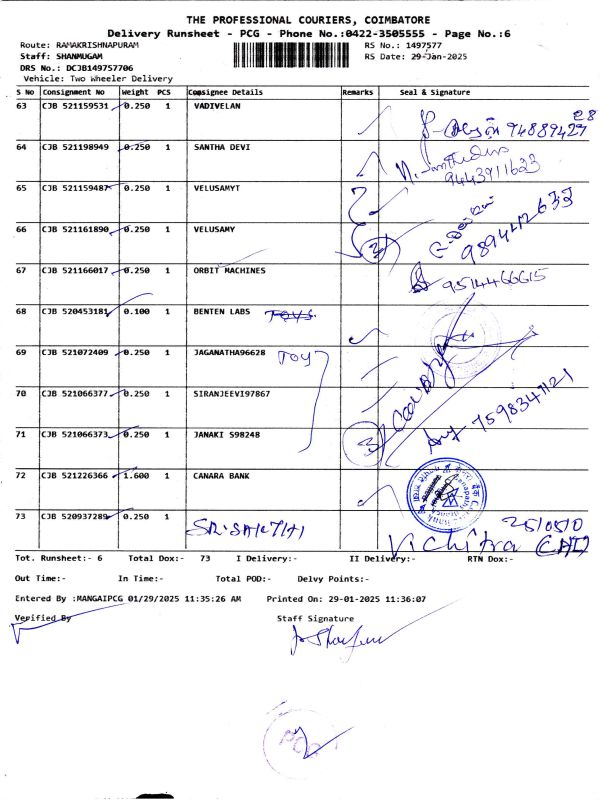 THE PROFESSIONAL COURIERS, COIMBATORE
Delivery Runsheet - PCG - Phone No.:0422-3505555 - Page No.:6
Route: RAMAKRISHNAPURAM RS No.: 1497577
Staff: SHANMUGAM RS Date: 29-Jan-2025
DRS No.: DCJB149757706
Vehicle: Two Wheeler Delivery
S No Consignment No Weight PCS Consignee Details Remarks Seal & Signature
63 CJB 521159531 0.250 1 VADIVELAN
64 CJB 521198949 0.250 1 SANTHA DEVI 9443911633
65 CJB 521159487 0.250 1 VELUSAMYT
66 CJB 521161890 0.250 1 VELUSAMY 3 9894412633
67 CJB 521166017 0.250 1 ORBIT MACHINES 9514466615
68 CJB 520453181 0.100 1 BENTEN LABS TOYS.
69 CJB 521072409 0.250 1 JAGANATHA96628 TOY
70 CJB 521066377 0.250 1 SIRANJEEVI97867
71 CJB 521066373 0.250 1 JANAKI S98248 3 7598347121
72 CJB 521226366 1.600 1 CANARA BANK
73 CJB 520937289 0.250 1 SRI SAKTHI 25/05/0
Vichitra
Tot. Runsheet:- 6 Total Dox:- 73 I Delivery:- II Delivery:- RTN Dox:-
Out Time:- In Time:- Total POD:- Delvy Points:-
Entered By :MANGAIPCG 01/29/2025 11:35:26 AM Printed On: 29-01-2025 11:36:07
Verified By Staff Signature